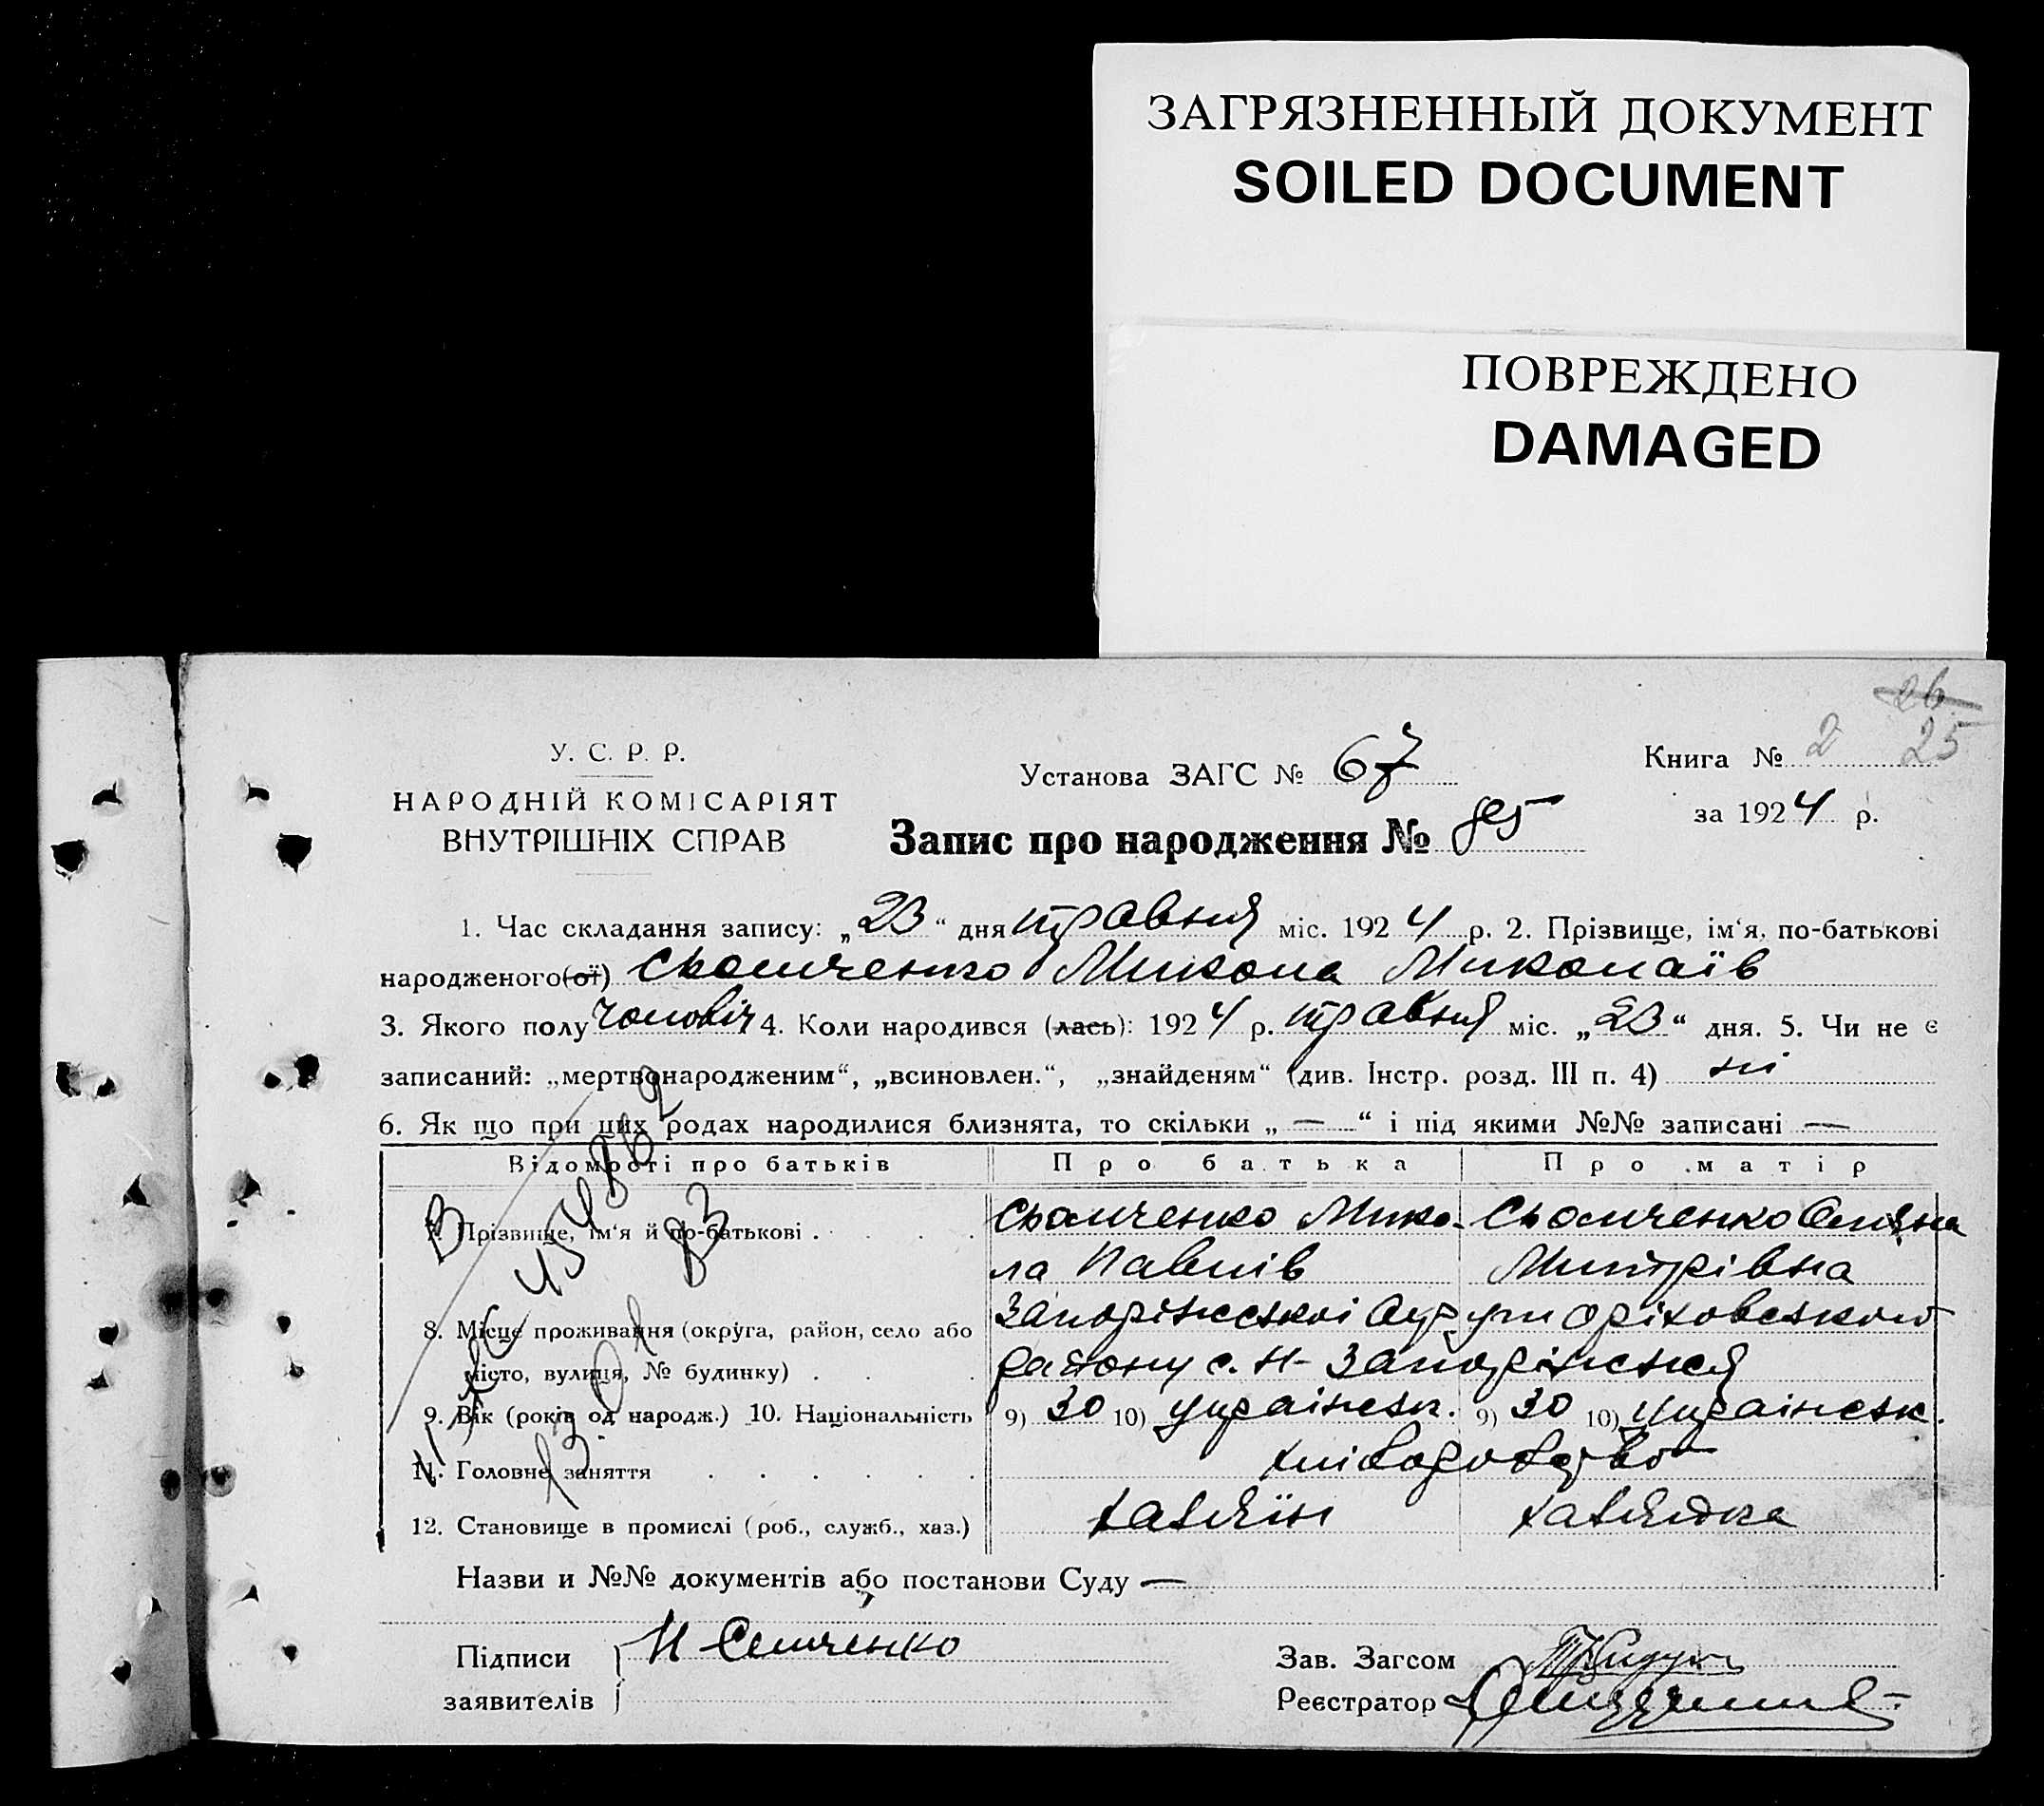 ЗАГРЯЗНЕННЫЙ ДОКУМЕНТ
SOILED DOCUMENT
ПОВРЕЖДЕНО
DAMAGED
26
25
У. С. Р. Р.
НАРОДНІЙ КОМІСАРІЯТ
ВНУТРІШНІХ СПРАВ
Установа ЗАГС № 67
Книга № 2
за 1924 р.
Запис про народження №
1. Час складання запису: „23“ дня травня міс. 1924 р. 2. Прізвище, ім‘я, по-батькові
народженого(ої) Сьомченко Микола Миколаїв
3. Якого полу чоловіч 4. Коли народився (лась): 1924 р. травня міс. „23“ дня. 5. Чи не є
записаний: „мертвонародженим“, „всиновлен.“, „знайденям“ (див. Інстр. розд. III п. 4) ні
6. Як що при цих родах народилися близнята, то скільки „—“ і під якими №№ записані —
Відомості про батьків Про батька Про матір
7. Прізвище, ім‘я й по-батькові . . . . Сьомченко Мико- Сьомченко
ла Павлів Митрівна
8. Місце проживання (округа, район, село або Запоріжської Оріховського
місто, вулиця, № будинку) . . . району с. Н-Запоріжся
9. Вік (років од народж.) 10. Національність 9) 30 10) українськ. 9) 30 10) українськ.
11. Головне заняття . . . . . . хліборобство
12. Становище в промислі (роб., служб., хаз.) хазяїн хазяйка
Назви и №№ документів або постанови Суду —
Підписи Н Семченко
заявителів
Зав. Загсом
Реєстратор